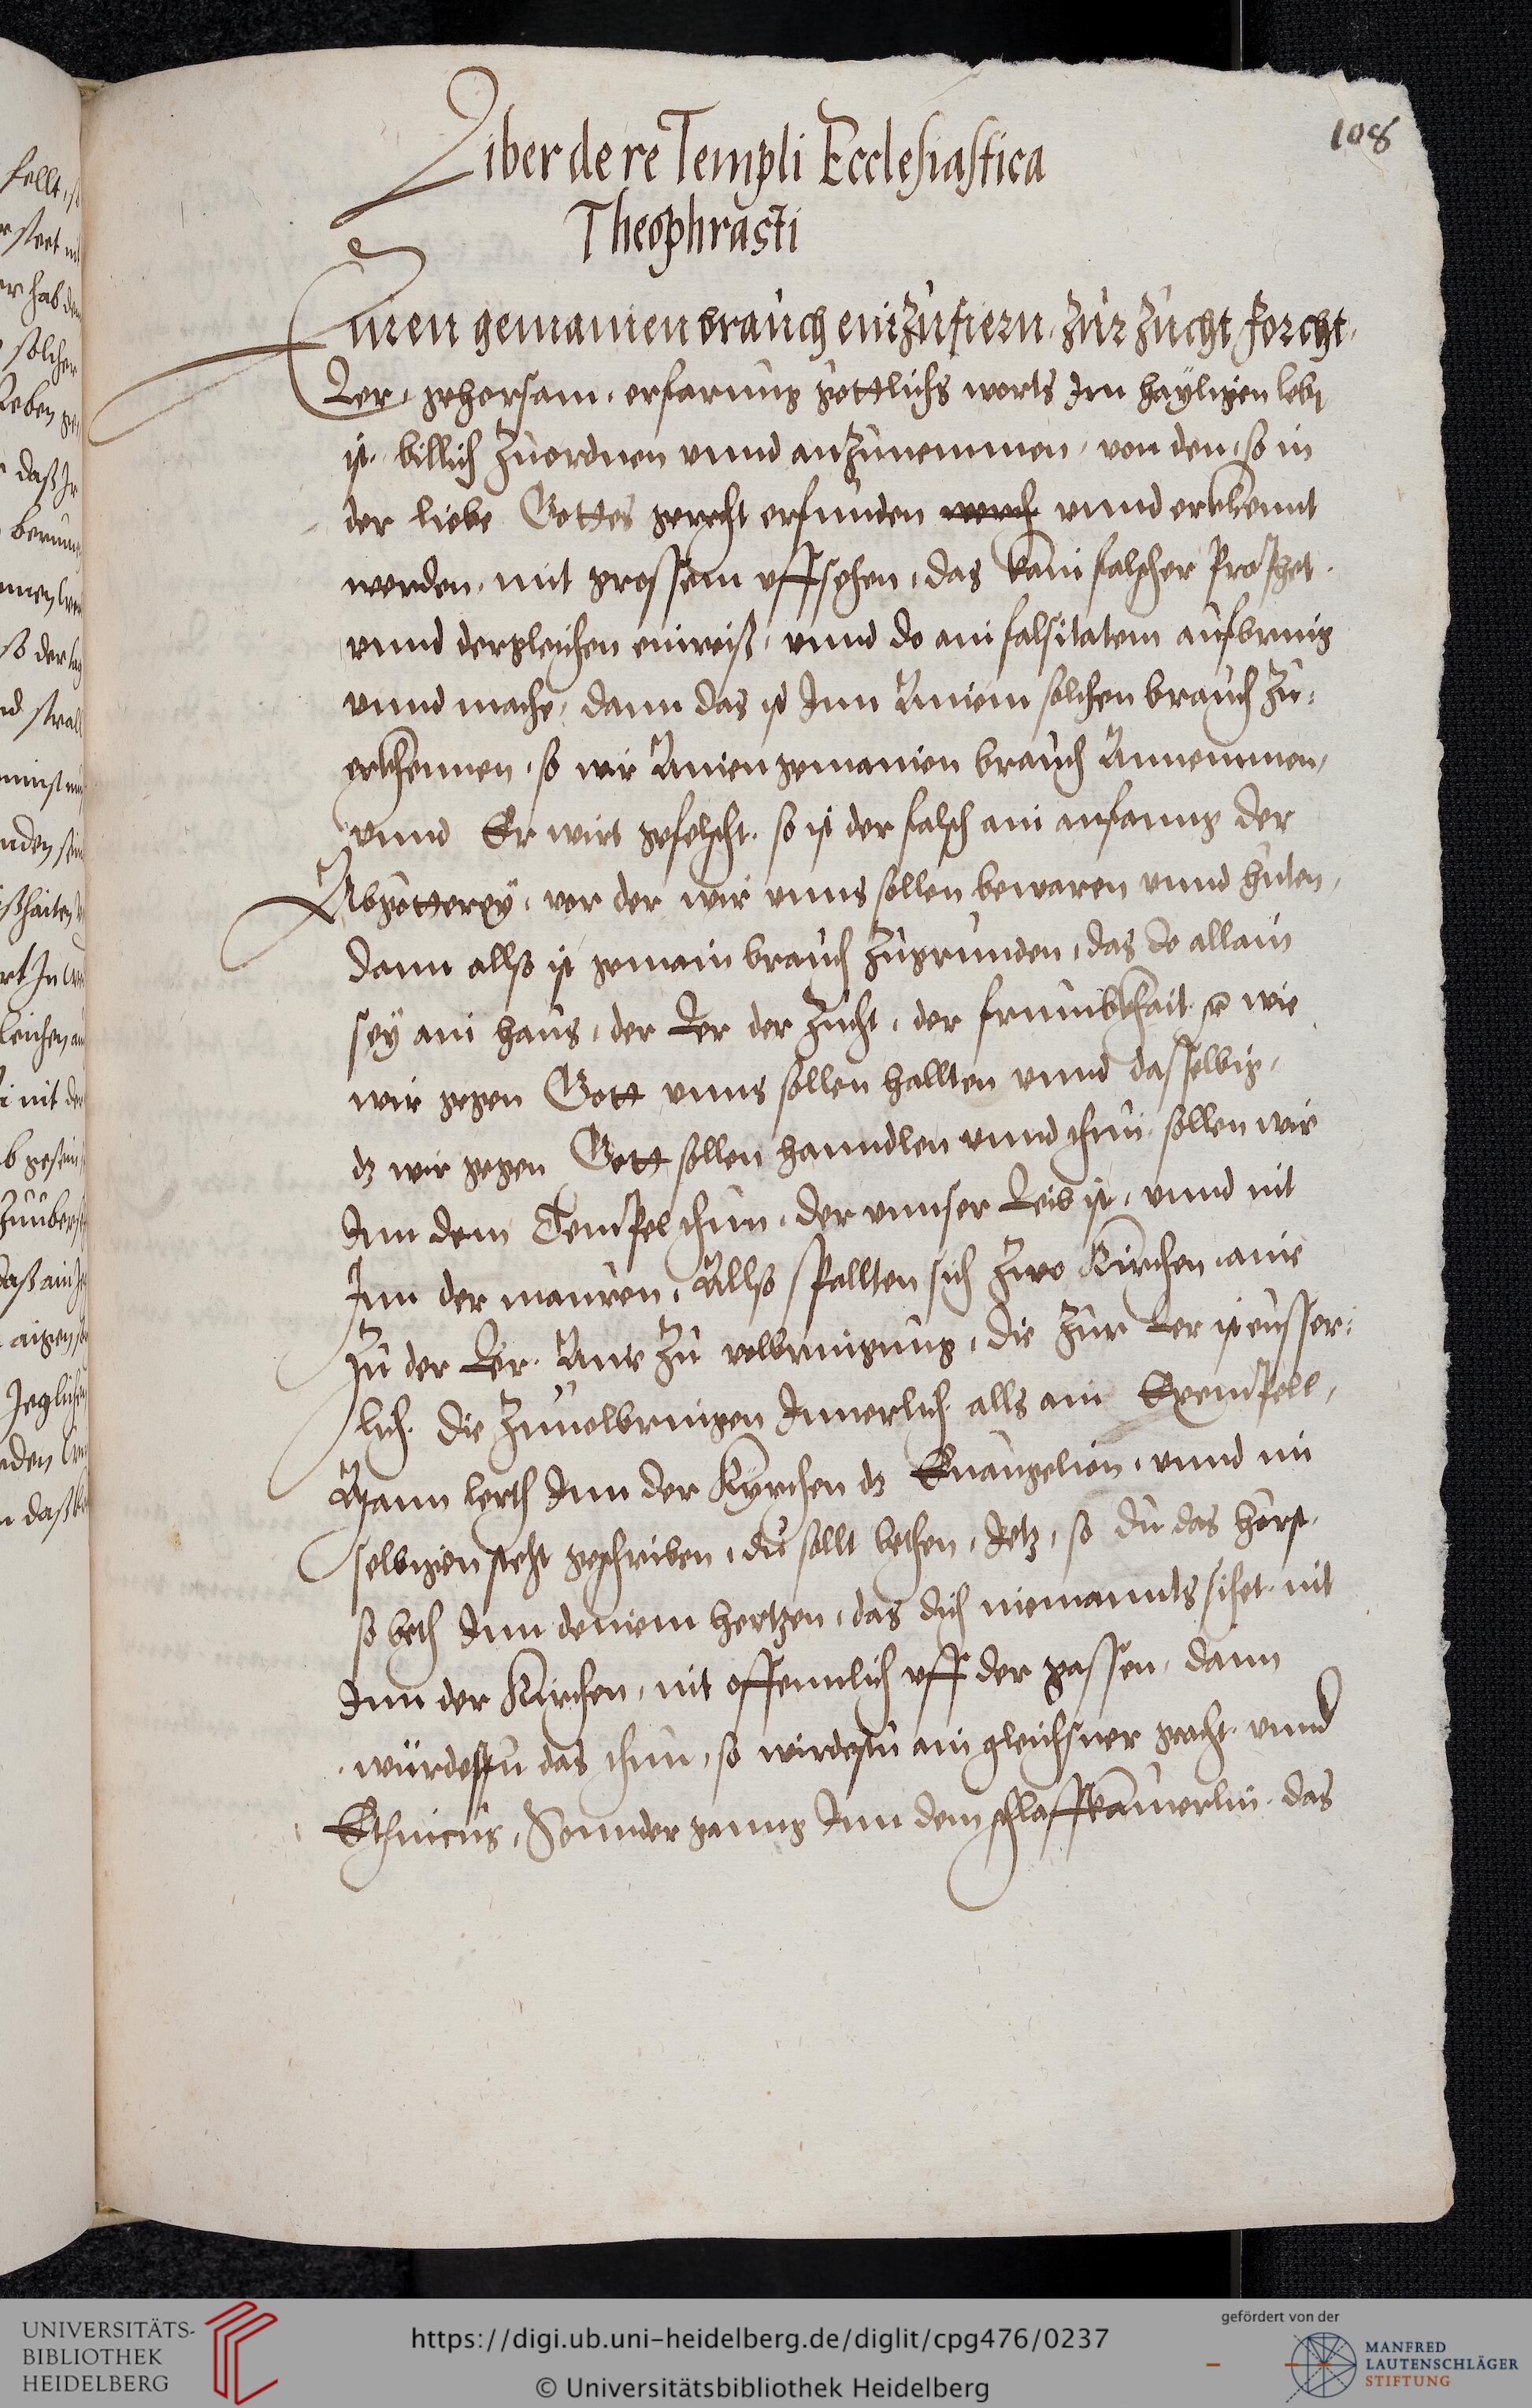 108
Liber de re Templi Ecclesiastica
Theophrasti
Einen gemainen brauch einzufiern, zur zucht forcht,
Ler, gehorsam, erfarung gottlichs worts Im hayligen leben
ist billich zuordnen vnnd anzunemmen, von den, so in
der liebe Gottes gerecht erfunden werd vnnd erkhennt
werden, mit grossem vffsehen, das kain falscher Prophet
vnnd dergleichen einreiß, vnnd do ain falsitatem aufbring
vnnd mache, dann das ist Inn Ainem solchen brauch zu-
erkhennen, so wir Ainen gemainen brauch Annemmen,
vnnd Er wirt gefelscht, so ist der falsch ain anfanng der
Abgötterey, vor der wir vnns sollen bewaren vnnd hüten,
dann allso ist gemain brauch zugrunden, das do allain
sey ain haus, der Ler der zucht, der frumbkhait wie
wir gegen Gott vnns sollen hallten vnnd dasselbig,
dz wir gegen Gott sollen hanndlen vnnd thun, sollen wir
Inn dem Tempel thun, der vnnser Leib ist, vnnd nit
Inn der mauren, Allso spallten sich zwo Kirchen, aine
zu der Ler, Aine zu volbringung, die zur Ler ist eusser-
lich, die zuuolbringen Innerlich, alls ain Exempell,
Mann lerth Inn der Kyrchen dz Euangelion, vnnd im
selbigen steht geschriben, du sollt bethen, Jetz, so du das hörst,
so beth Inn deinem hertzen, das dich niemannds sihet, nit
Inn der Kirchen, nit offennlich vff der gassen, dann
würdestu das thun, so wirdestu ain gleichsner geacht, vnnd
Ethnicus, Sonnder ganng Inn dem schlaffkämerlin, das
UNIVERSITÄTS-
BIBLIOTHEK
HEIDELBERG
https://digi.ub.uni-heidelberg.de/diglit/cpg476/0237
© Universitätsbibliothek Heidelberg
gefördert von der
MANFRED
LAUTENSCHLÄGER
STIFTUNG